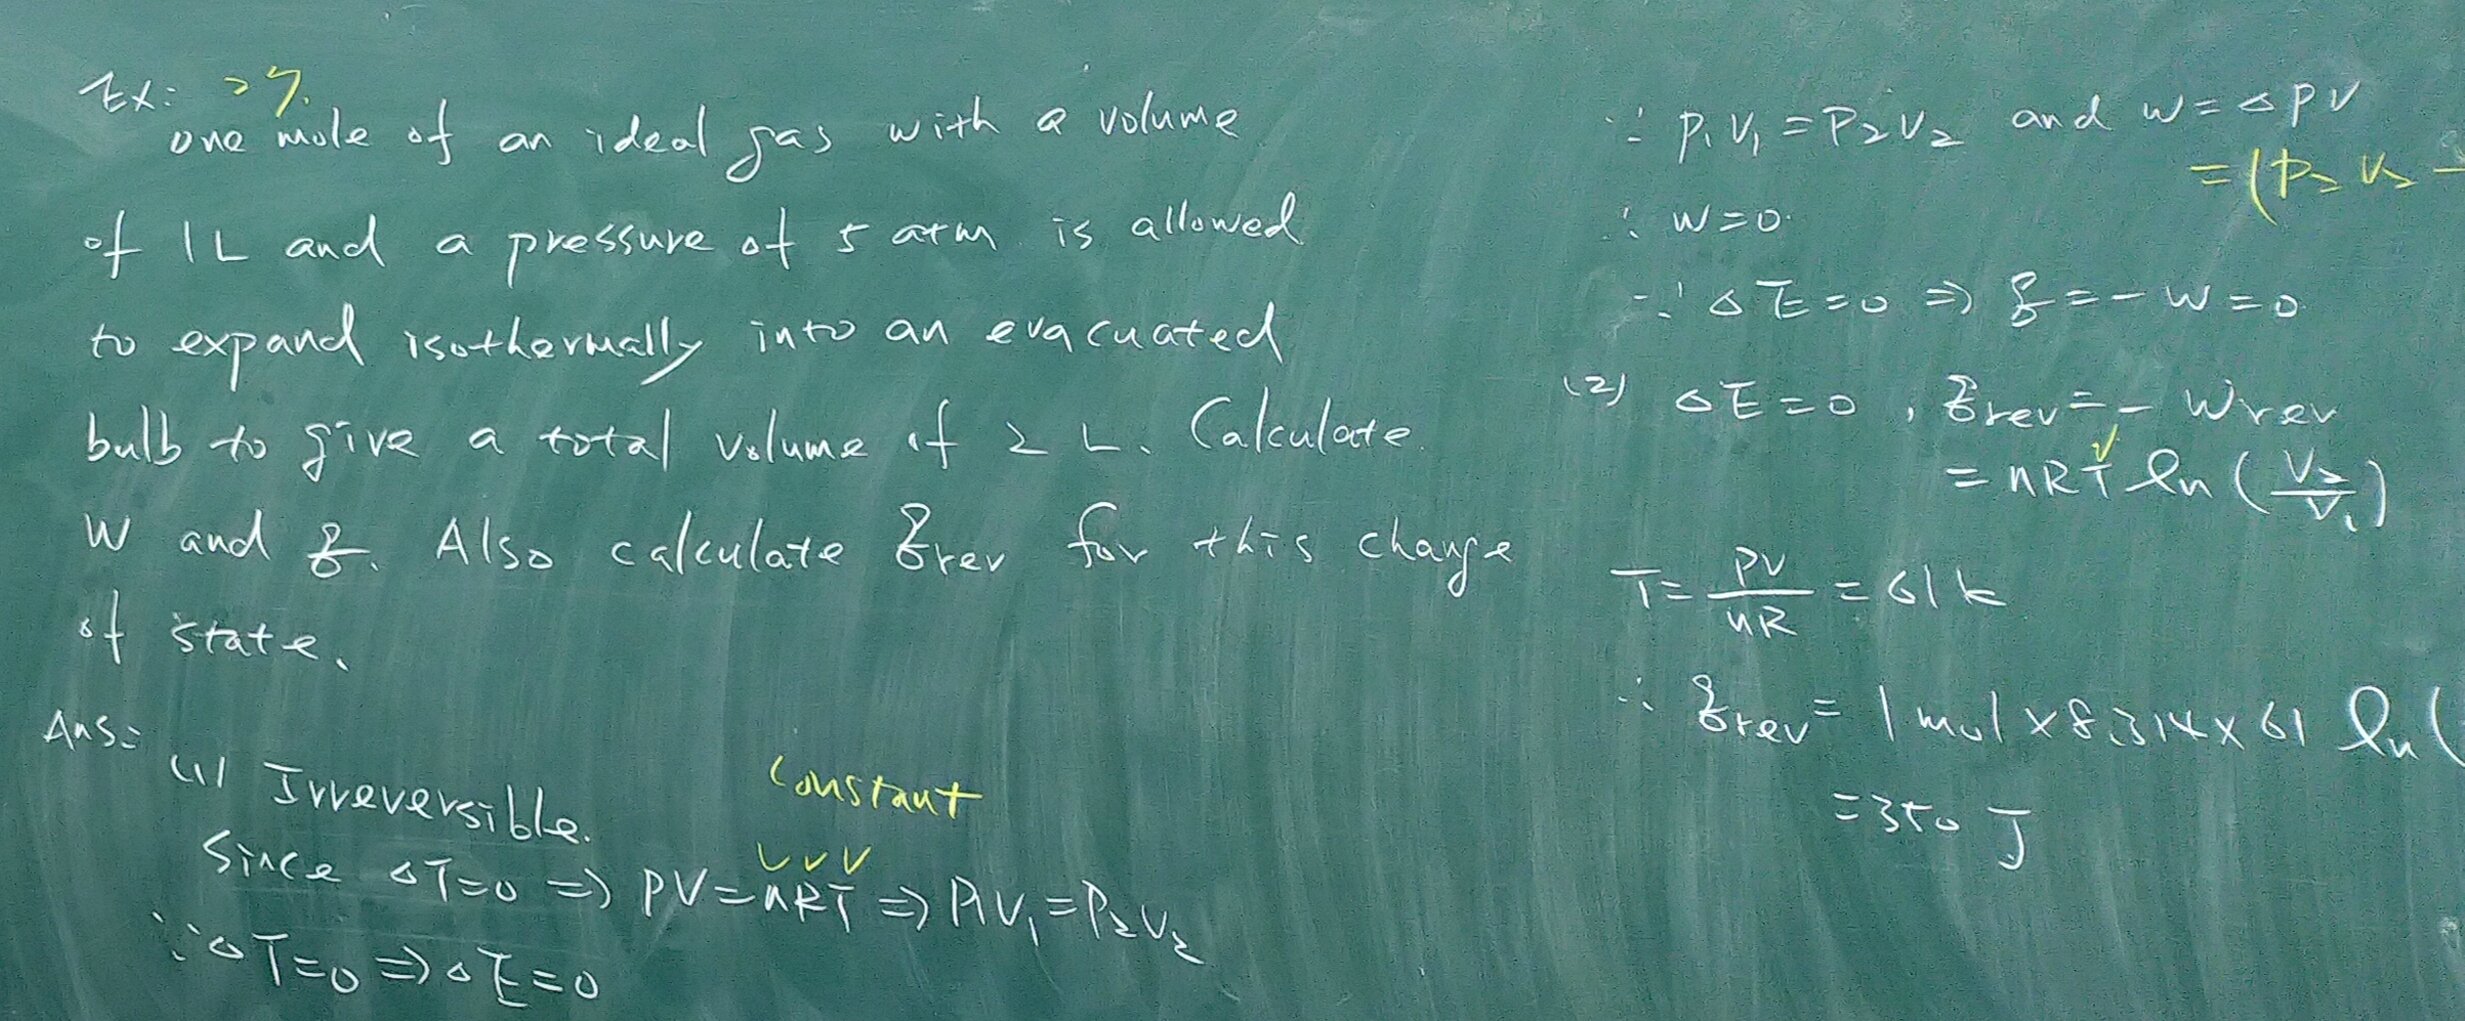 Ex: 27.
one mole of an ideal gas with a volume
of 1L and a pressure of 5 atm is allowed
to expand isothermally into an evacuated
bulb to give a total volume of 2 L. Calculate
W and q. Also calculate qrev for this change
of state.
Ans:
(1) Irreversible.
constant
Since ΔT=0 ⇒ PV=nRT ⇒ P₁V₁=P₂V₂
∵ ΔT=0 ⇒ ΔE=0
∵ P₁V₁=P₂V₂ and W=ΔPV
=(P₂V₂-
∴ W=0.
∵ ΔE=0 ⇒ q=-W=0
(2) ΔE=0, qrev=-Wrev
=nRT ln(V₂/V₁)
T=PV/nR=61k
∴ qrev=1mol×8.314×61 ln(
=350 J